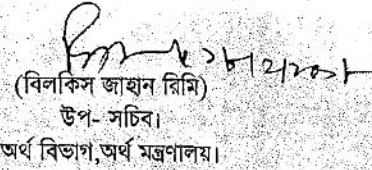 (বিলকিস জাহান রিমি)
উপ- সচিব।
অর্থ বিভাগ,অর্থ মন্ত্রণালয়।